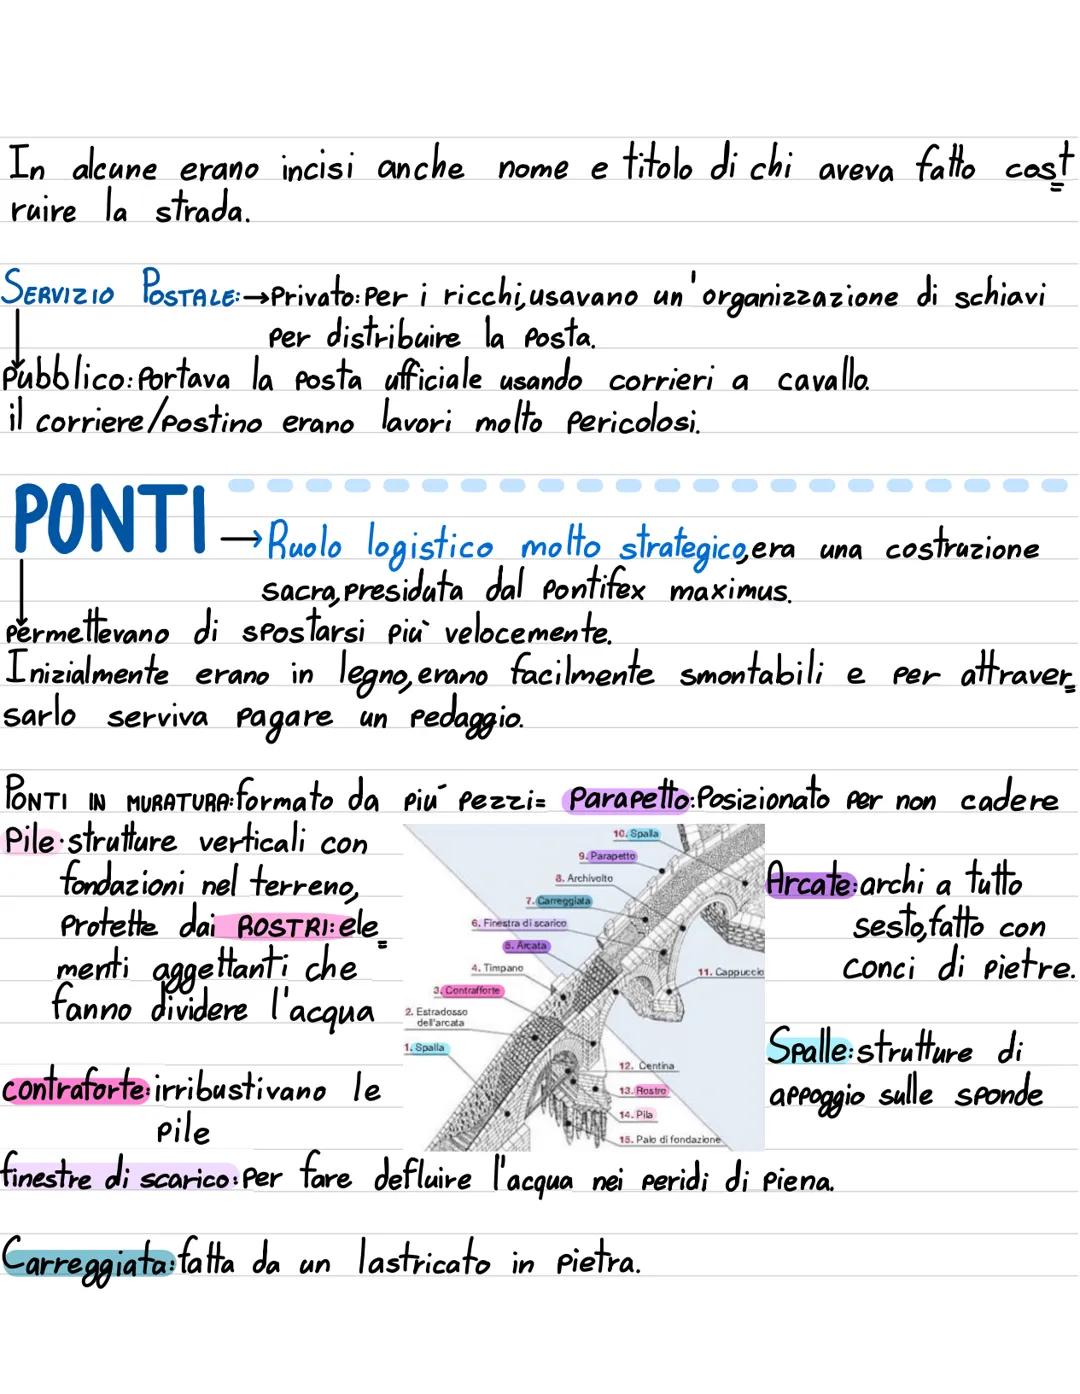 In alcune erano incisi anche nome e titolo di chi aveva fatto cost
ruire la strada.
SERVIZIO POSTALE:→Privato: Per i ricchi, usavano un'organizzazione di schiavi
per distribuire la posta.
Pubblico: Portava la posta ufficiale usando corrieri a cavallo.
il corriere/postino erano lavori molto pericolosi.
PONTI →Ruolo logistico molto strategico, era una costruzione
sacra, presiduta dal Pontifex maximus.
permettevano di spostarsi più velocemente.
Inizialmente erano in legno, erano facilmente smontabili e per attraver
sarlo serviva pagare un pedaggio.
PONTI IN MURATURA: formato da più pezzi= Parapetto: Posizionato per non cadere
Pile: strutture verticali con
fondazioni nel terreno,
Protette dai ROSTRI: ele
menti aggettanti che
fanno dividere l'acqua
contraforte: irribustivano le
pile
10. Spalla
9. Parapetto
8. Archivolto
7. Carreggiata
6. Finestra di scarico
5. Arcata
4. Timpano
3. Contrafforte
2. Estradosso
dell'arcata
1. Spalla
11. Cappuccio
12. Centina
13. Rostro
14. Pila
15. Palo di fondazione
Arcate: archi a tutto
sesto, fatto con
conci di pietre.
Spalle: strutture di
appoggio sulle sponde
finestre di scarico: per fare defluire l'acqua nei peridi di piena.
Carreggiata: fatta da un lastricato in pietra.